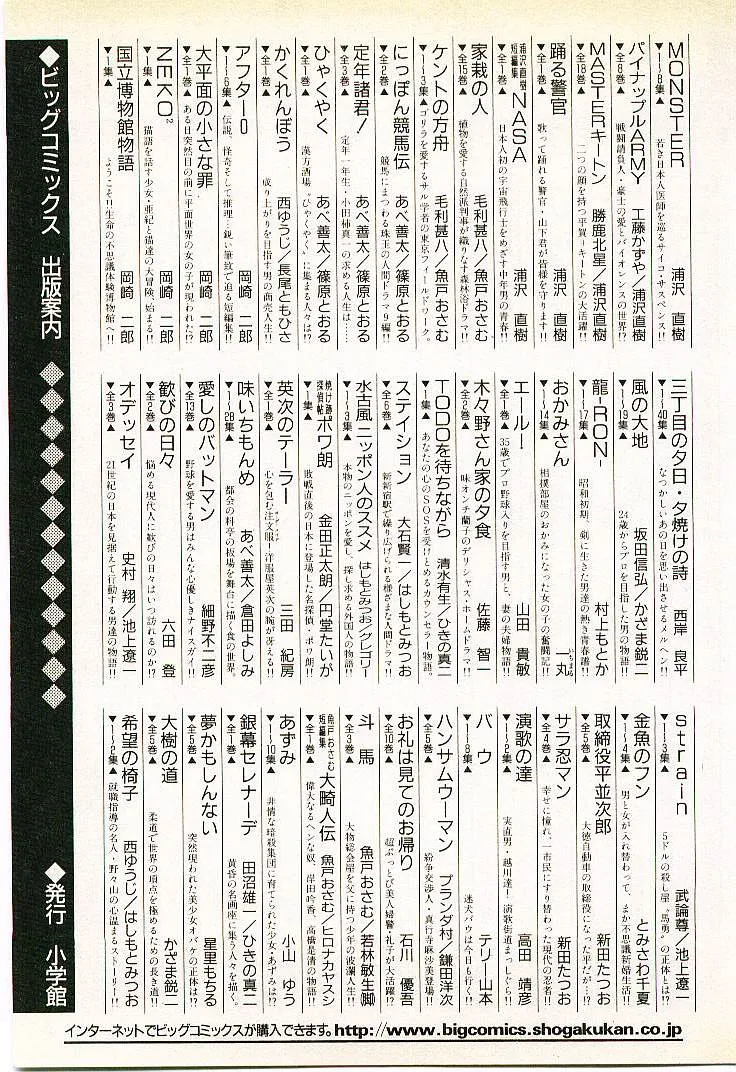 MONSTER 浦沢 直樹
▼1〜8集▲ 若き日本人医師を巡るサイコ・サスペンス!!
パイナップルARMY 工藤かずや/浦沢直樹
▼全8巻▲ 戦闘請負人・豪士の愛とバイオレンスの世界!?
MASTERキートン 勝鹿北星/浦沢直樹
▼全18巻▲ 二つの顔を持つ平賀=キートンの大活躍!!
踊る警官 浦沢 直樹
▼全1巻▲ 歌って踊れる警官・山下君が皆様を守ります!!
浦沢直樹短編集 NASA 浦沢 直樹
▼全1巻▲ 日本人初の宇宙飛行士をめざす中年男の青春!!
家栽の人 毛利甚八/魚戸おさむ
▼全15巻▲ 植物を愛する自然派判事が織りなす森林浴ドラマ!!
ケントの方舟 毛利甚八/魚戸おさむ
▼1〜3集▲ ゴリラを愛するサル学者の東京フィールドワーク。
にっぽん競馬伝 あべ善太/篠原とおる
▼全2巻▲ 競馬にまつわる珠玉の人間ドラマ9編!!
定年諸君! あべ善太/篠原とおる
▼全3巻▲ 定年一年生・小田柿真一の求める人生は……
ひゃくやく あべ善太/篠原とおる
▼全1巻▲ 漢方酒場“ひゃくやく”に集まる人々は!?
かくれんぼう 西ゆうじ/長尾ともひさ
▼全1巻▲ 成り上がりを目指す男の商売人生!!
アフター0 岡崎 二郎
▼1〜6集▲ 伝説、怪奇そして推理…鋭い筆致で迫る短編集!!
大平面の小さな罪 岡崎 二郎
▼全1巻▲ ある日突然目の前に平面世界の女の子が現われた!?
NEKO² 岡崎 二郎
▼1集▲ 猫語を話す少女・亜紀と猫達の大冒険、始まる!!
国立博物館物語 岡崎 二郎
▼1集▲ ようこそ!!生命の不思議体験博物館へ!!
三丁目の夕日・夕焼けの詩 西岸 良平
▼1〜40集▲ なつかしいあの日を思い出させるメルヘン!!
風の大地 坂田信弘/かざま鋭二
▼1〜19集▲ 24歳からプロを目指した男の物語!!
龍-RON- 村上もとか
▼1〜17集▲ 昭和初期、剣に生きた男達の熱き青春譜!!
おかみさん 一丸
▼1〜14集▲ 相撲部屋のおかみになった女の子の奮闘記!!
エール! 山田 貴敏
▼全1巻▲ 35歳でプロ野球入りを目指す男と、妻の夫婦物語!!
木々野さん家の夕食 佐藤 智一
▼全2巻▲ 味オンチ蘭子のデリシャス・ホームドラマ!!
TODOを待ちながら 清水有生/ひきの真二
▼1集▲ あなたの心のSOSを受けとめるカウンセラー物語。
ステイション 大石賢一/はしもとみつお
▼全6巻▲ 新新宿駅で繰り広げられる様ざまな人間ドラマ!!
水古風 ニッポン人のススメ はしもとみつお/グレゴリー
▼1〜3集▲ 本物のニッポンを愛し、探し求める外国人の物語!!
焼け跡探偵帖 ポワ朗 金田正太朗/円堂たいが
▼1集▲ 敗戦直後の日本に登場した名探偵・ポワ朗!!
英次のテーラー 三田 紀房
▼全1巻▲ 心を包む注文服!洋服屋英次の腕が冴える!!
味いちもんめ あべ善太/倉田よしみ
▼1〜28集▲ 都会の料亭の板場を舞台に描く食の世界。
愛しのバットマン 細野不二彦
▼全13巻▲ 野球を愛する男はみんな心優しきナイスガイ!!
歓びの日々 六田 登
▼全2巻▲ 悩める現代人に歓びの日々はいつ訪れるのか!?
オデッセイ 史村 翔/池上遼一
▼全3巻▲ 21世紀の日本を見据えて行動する男達の物語!!
strain 武論尊/池上遼一
▼1〜3集▲ 5ドルの殺し屋“馬勇”の正体とは!?
金魚のフン とみさわ千夏
▼1〜4集▲ 男と女が入れ替わって、まか不思議新婚生活!!
取締役平並次郎 新田たつお
▼全5巻▲ 大徳自動車の取締役になった平だが…!?
サラ忍マン 新田たつお
▼全4巻▲ 幸せに憧れ、一市民にすり替わった現代の忍者!!
演歌の達 高田 靖彦
▼1〜2集▲ 実直男・越川達!演歌街道まっしぐら!!
バウ テリー山本
▼1〜8集▲ 迷犬バウは今日も行く!!
ハンサムウーマン ブランダ村/鎌田洋次
▼全5巻▲ 紛争交渉人・真行寺麻沙美登場!!
お礼は見てのお帰り 石川 優吾
▼全10巻▲ 超ぶっとび美人婦警・礼子が大活躍!?
斗馬 魚戸おさむ/若林敏生(脚)
▼全3巻▲ 大物総会屋を父に持つ少年の波瀾人生!!
魚戸おさむ短編集 大畸人伝 魚戸おさむ/ヒロナカヤスシ
▼全1巻▲ 偉大なるヘンな奴、岸田吟香、高橋是清の物語!!
あずみ 小山 ゆう
▼1〜10集▲ 非情な暗殺集団に育てられた少女・あずみは!?
銀幕セレナーデ 田沼雄一/ひきの真二
▼全1巻▲ 黄昏の名画座に集う人々を描く。
夢かもしんない 星里もちる
▼全5巻▲ 突然現われた美少女オバケの正体は!?
大樹の道 かざま鋭二
▼全5巻▲ 柔道で世界の頂点を極めるための長き道!!
希望の椅子 西ゆうじ/はしもとみつお
▼1〜2集▲ 就職指導の名人・野々山の心温まるストーリー!!
◆ビッグコミックス 出版案内 ◆◆◆◆◆◆◆◆◆◆◆◆◆ ◆発行 小学館
インターネットでビッグコミックスが購入できます。http://www.bigcomics.shogakukan.co.jp